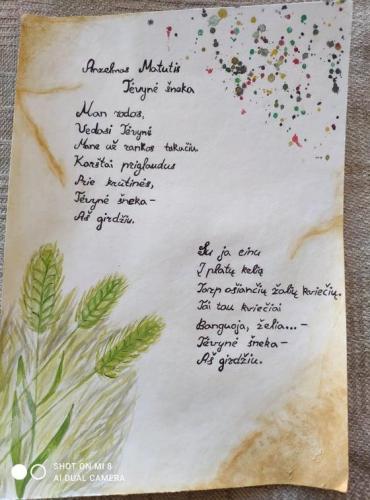 Anzelmas Matutis
Tėvynė šneka
Man rodos,
Vedasi Tėvynė
Mane už rankos takučiu.
Karštai priglaudus
Prie krūtinės,
Tėvynė šneka-
Aš girdžiu.
Su ja einu
Į platų kelią
Tarp ošiančių žalių kviečių.
Tai tau kviečiai
Banguoja, želia...-
Tėvynė šneka-
Aš girdžiu.
SHOT ON MI 8
AI DUAL CAMERA